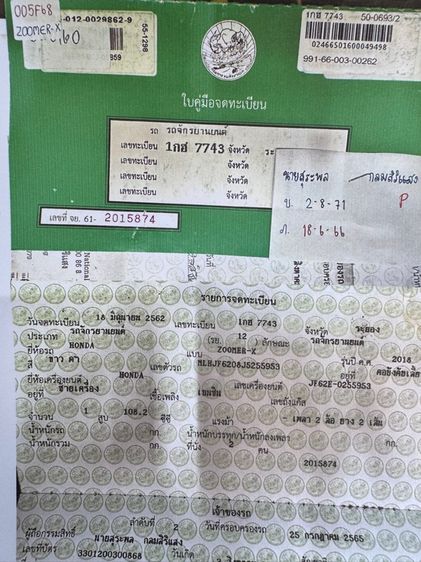 005F68
ZOOMER-X
-012-0029862-9
55-1298
859
1กฮ 7743 50-0693/2
02466501600049498
991-66-003-00262
ใบคู่มือจดทะเบียน
รถ รถจักรยานยนต์
เลขทะเบียน 1กฮ 7743 จังหวัด ระ
เลขทะเบียน จังหวัด
เลขทะเบียน จังหวัด
เลขทะเบียน จังหวัด
นายสุระพล กลมสิริแสง
ข. 2-8-71 P
ภ. 18-6-66
เลขที่ จย. 61- 2015874
National
รายการจดทะเบียน
วันจดทะเบียน 18 มิถุนายน 2562 เลขทะเบียน 1กฮ 7743 จังหวัด ระยอง
ประเภท รถจักรยานยนต์ (รย. 12 ) ลักษณะ รถจักรยานยนต์
ยี่ห้อรถ HONDA แบบ ZOOMER-X รุ่นปี ค.ศ. 2018
ขาว ดำ เลขตัวรถ MLHJF6208J5255953 อยู่ที่ คอยังคับเลี้ยว
ยี่ห้อเครื่องยนต์ HONDA เลขเครื่องยนต์ JF62E-0255953
อยู่ที่ ซ้ายเครื่อง เชื้อเพลิง เบนซิน เลขถังแก๊ส
จำนวน 1 สูบ 108.2 ซีซี แรงม้า - เพลา 2 ล้อ ยาง 2 เส้น
น้ำหนักรถ กก. น้ำหนักบรรทุก/น้ำหนักลงเพลา กก.
น้ำหนักรวม กก. ที่นั่ง 2 คน
2015874
เจ้าของรถ
ลำดับที่ 2 วันที่ครอบครองรถ 25 กรกฎาคม 2565
ผู้ถือกรรมสิทธิ์ นายสุระพล กลมสิริแสง
เลขที่บัตร 3301200300868 วันเกิด